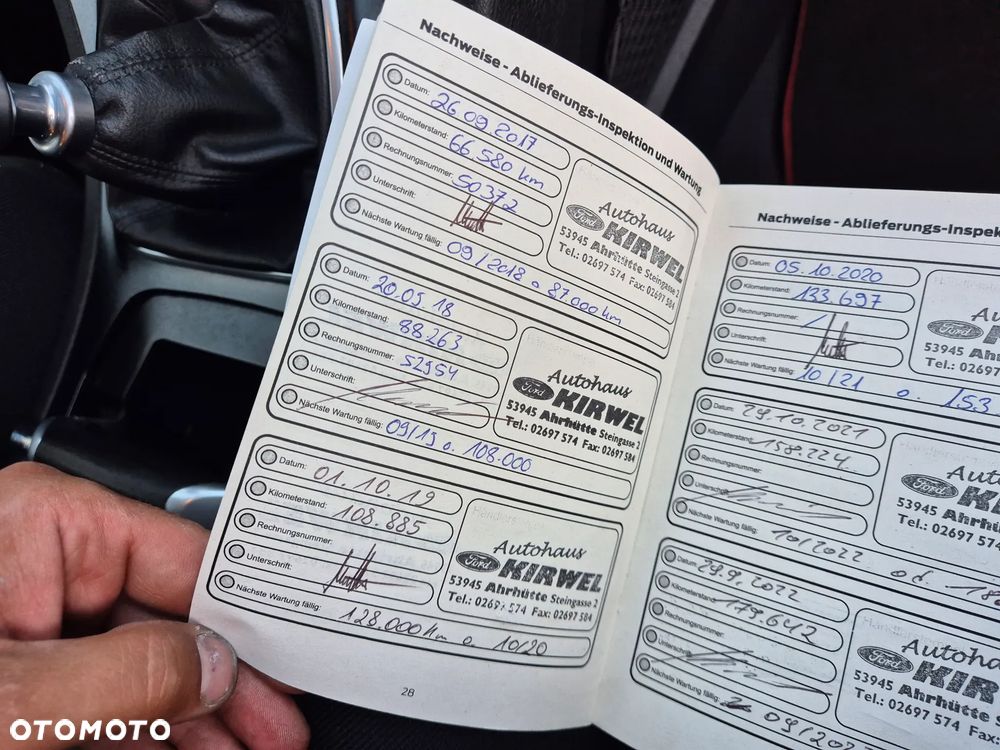 Nachweise - Ablieferungs-Inspektion und Wartung
Datum: 26 09.2017
Kilometerstand: 66.580 km
Rechnungsnummer: 50372
Unterschrift:
Nächste Wartung fällig: 09/2018 o 87000 km
Autohaus
Ford KIRWEL
53945 Ahrhütte Steingasse 2
Tel.: 02697 574 Fax: 02697 584
Datum:
Kilometerstand: 88.263
Rechnungsnummer: 52954
Unterschrift:
Nächste Wartung fällig: 09/19 o. 108.000
Autohaus
Ford KIRWEL
53945 Ahrhütte Steingasse 2
Tel.: 02697 574 Fax: 02697 584
Datum: 01.10.19
Kilometerstand: 108.885
Rechnungsnummer:
Unterschrift:
Nächste Wartung fällig: 128.000 km o. 10/20
Autohaus
Ford KIRWEL
53945 Ahrhütte Steingasse 2
Tel.: 02697 574 Fax: 02697 584
28
Nachweise - Ablieferungs-Inspekt
Datum: 05.10.2020
Kilometerstand: 133.697
Rechnungsnummer: /
Unterschrift:
Nächste Wartung fällig: 10/21 o. 153
Autoha
Ford KI
53945 Ahrhütt
Tel.: 02697
Datum: 29.10.2021
Kilometerstand: 158.224
Rechnungsnummer:
Unterschrift:
Nächste Wartung fällig: 10/2022 od.
Autoha
Ford KIR
53945 Ahrhütt
Tel.: 02697 574
Datum: 29.9.2022
Kilometerstand: 179.642
Rechnungsnummer:
Unterschrift:
Nächste Wartung fällig: 09/202
Autoha
Ford KIRW
53945 Ahrhütte
Tel.: 02697 574
OTOMOTO